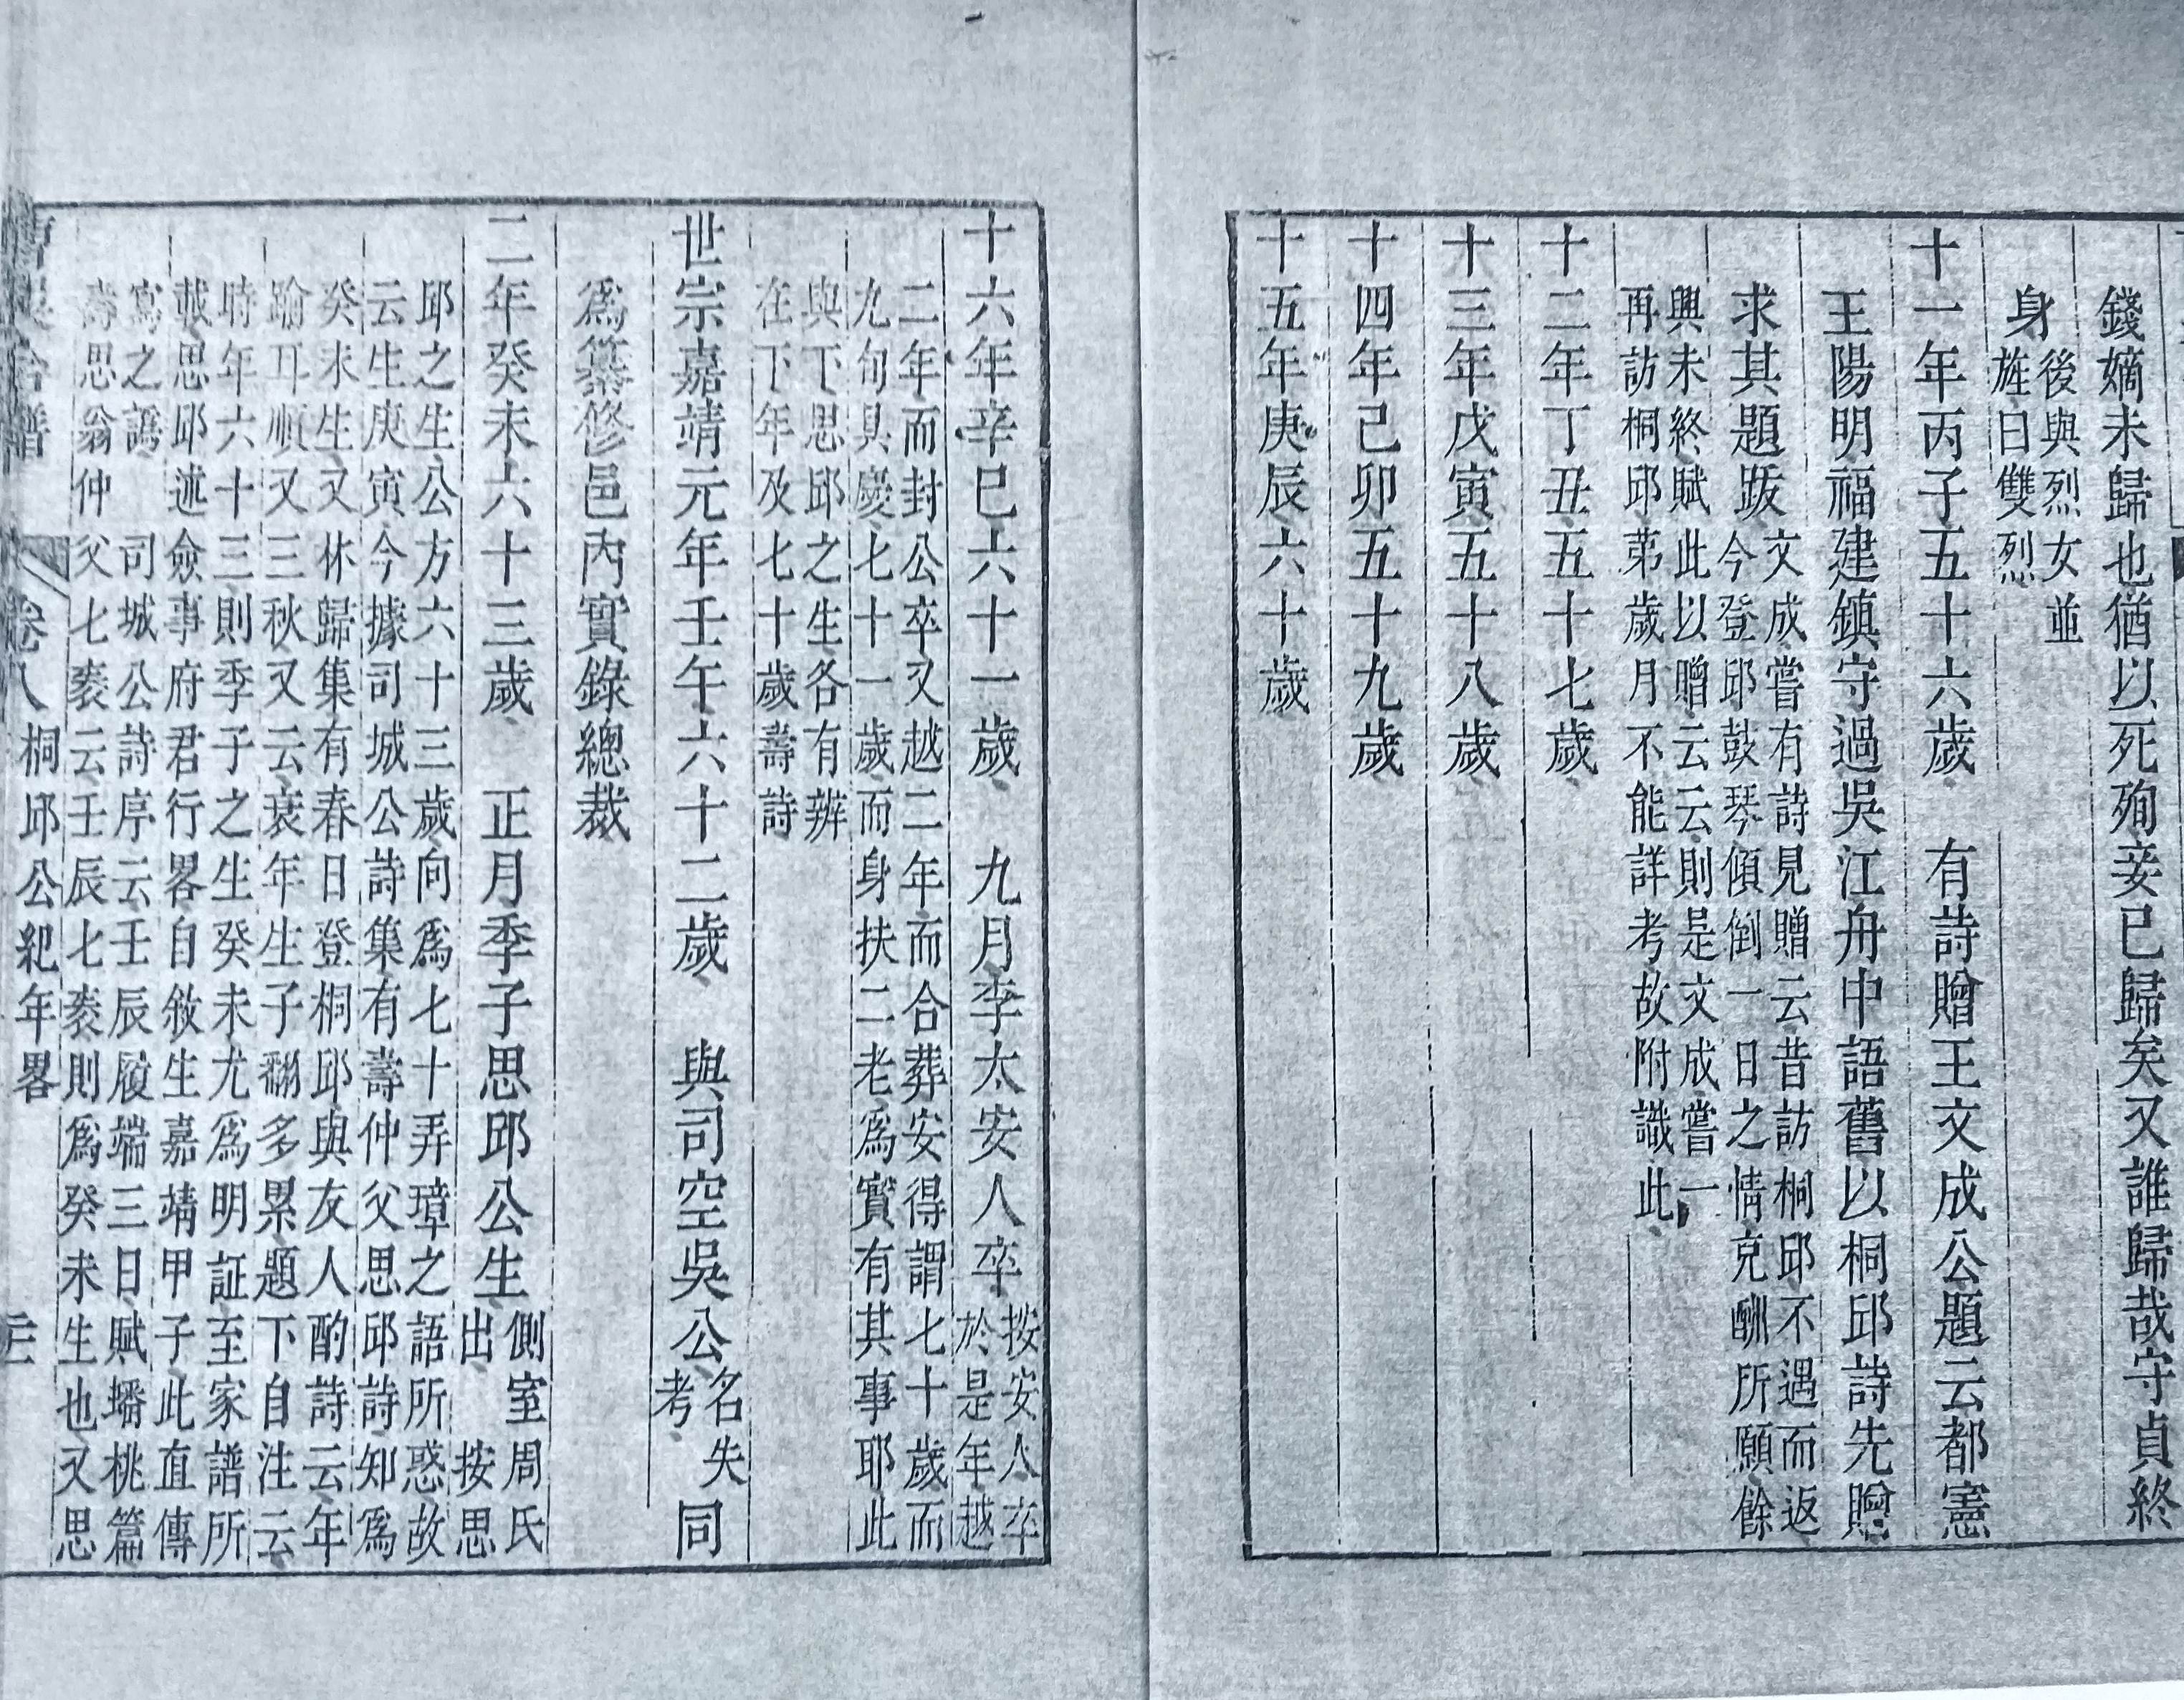 錢嫡未歸也猶以死殉妾已歸矣又誰歸哉守貞終
身後與烈女並
旌曰雙烈
十一年丙子五十六歲、有詩贈王文成公題云都憲
王陽明福建鎮守過吳江舟中語舊以桐邱詩先贈
求其題跋文成嘗有詩見贈云昔訪桐邱不遇而返
今登邱鼓琴傾倒一日之情克酬所願餘
興未終賦此以贈云云則是文成嘗一
再訪桐邱苐歲月不能詳考故附識此、
十二年丁丑五十七歲、
十三年戊寅五十八歲、
十四年己卯五十九歲、
十五年庚辰六十歲、
十六年辛巳六十一歲、九月李太安人卒按安人卒
於是年越
二年而封公卒又越二年而合葬安得謂七十歲而
九旬具慶七十一歲而身扶二老爲實有其事耶此
與下思邱之生各有辨
在下年及七十歲壽詩
世宗嘉靖元年壬午六十二歲、與司空吳公名失
考、同
爲纂修邑內實錄總裁
二年癸未六十三歲、正月季子思邱公生側室周氏
出、按思
邱之生公方六十三歲向爲七十弄璋之語所惑故
云生庚寅今據司城公詩集有壽仲父思邱詩知爲
癸未生又休歸集有春日登桐邱與友人酌詩云年
踰耳順又三秋又云衰年生子翻多累題下自注云
時年六十三則季子之生癸未尤爲明証至家譜所
載思邱述僉事府君行畧自敘生嘉靖甲子此直傳
寫之譌司城公詩序云壬辰履端三日賦蟠桃篇
壽思翁仲父七袠云壬辰七袠則爲癸未生也又思
卷八 桐邱公紀年畧